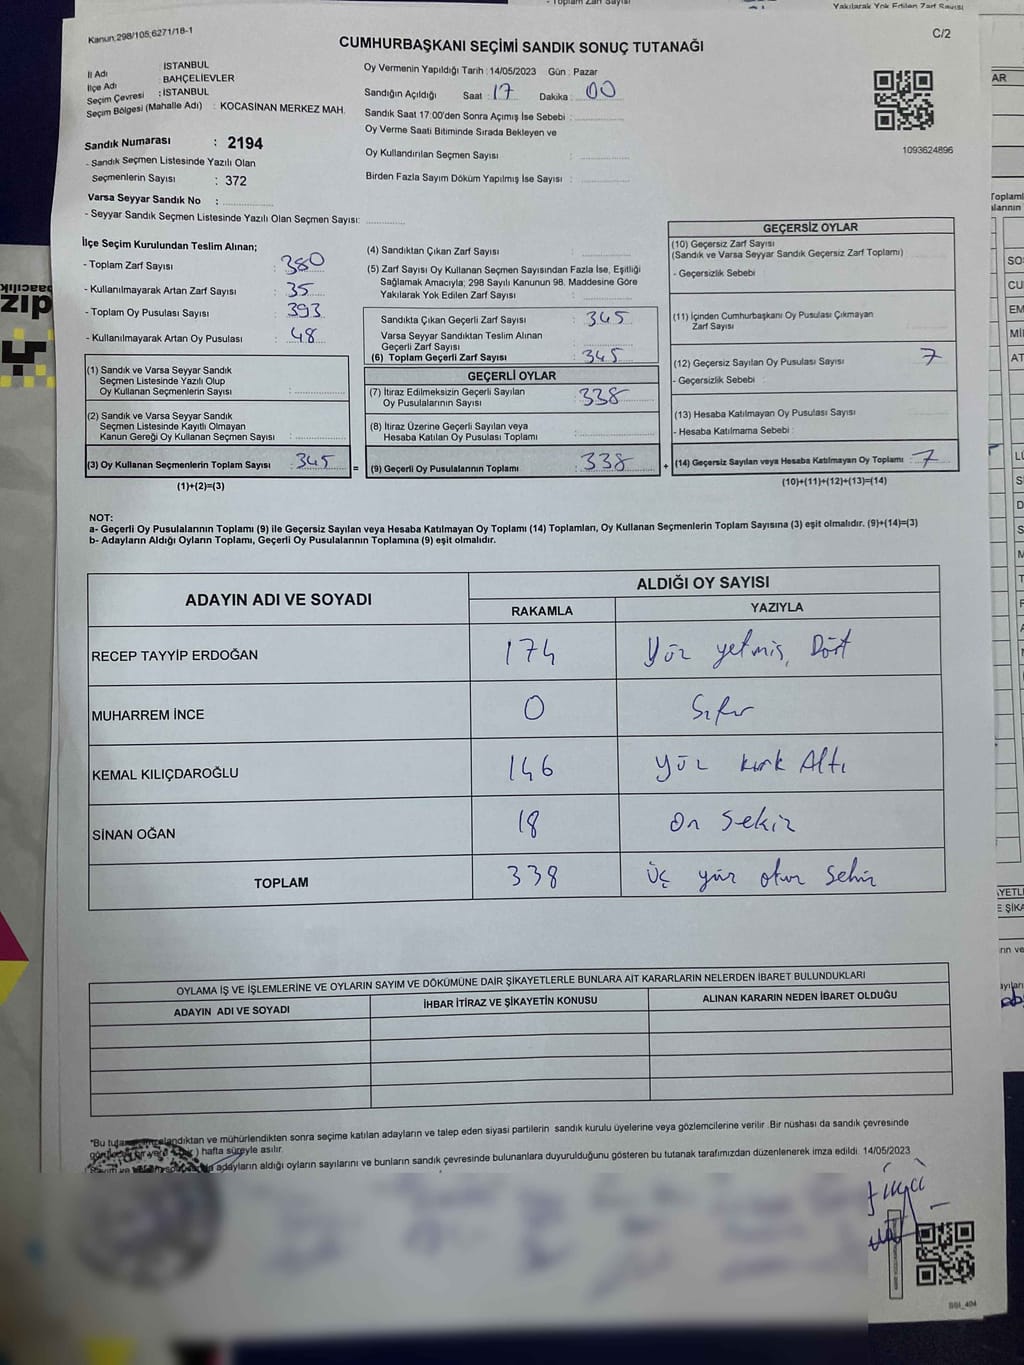 Kanun;298/105;6271/18-1
C/2
CUMHURBAŞKANI SEÇİMİ SANDIK SONUÇ TUTANAĞI
İl Adı : İSTANBUL
İlçe Adı : BAHÇELİEVLER
Seçim Çevresi : İSTANBUL
Seçim Bölgesi (Mahalle Adı) : KOCASİNAN MERKEZ MAH.
Oy Vermenin Yapıldığı Tarih : 14/05/2023 Gün : Pazar
Sandığın Açıldığı Saat : 17 Dakika : 00
Sandık Saat 17:00'den Sonra Açımış İse Sebebi :
Oy Verme Saati Bitiminde Sırada Bekleyen ve
Oy Kullandırılan Seçmen Sayısı :
Birden Fazla Sayım Döküm Yapılmış İse Sayısı :
1093624896
Sandık Numarası : 2194
- Sandık Seçmen Listesinde Yazılı Olan
Seçmenlerin Sayısı : 372
Varsa Seyyar Sandık No :
- Seyyar Sandık Seçmen Listesinde Yazılı Olan Seçmen Sayısı:
İlçe Seçim Kurulundan Teslim Alınan;
- Toplam Zarf Sayısı : 380
- Kullanılmayarak Artan Zarf Sayısı : 35
- Toplam Oy Pusulası Sayısı : 393
- Kullanılmayarak Artan Oy Pusulası : 48
(1) Sandık ve Varsa Seyyar Sandık
Seçmen Listesinde Yazılı Olup
Oy Kullanan Seçmenlerin Sayısı :
(2) Sandık ve Varsa Seyyar Sandık
Seçmen Listesinde Kayıtlı Olmayan
Kanun Gereği Oy Kullanan Seçmen Sayısı :
(3) Oy Kullanan Seçmenlerin Toplam Sayısı : 345
(1)+(2)=(3)
(4) Sandıktan Çıkan Zarf Sayısı :
(5) Zarf Sayısı Oy Kullanan Seçmen Sayısından Fazla İse, Eşitliği
Sağlamak Amacıyla; 298 Sayılı Kanunun 98. Maddesine Göre
Yakılarak Yok Edilen Zarf Sayısı :
Sandıkta Çıkan Geçerli Zarf Sayısı : 345
Varsa Seyyar Sandıktan Teslim Alınan
Geçerli Zarf Sayısı :
(6) Toplam Geçerli Zarf Sayısı : 345
GEÇERLİ OYLAR
(7) İtiraz Edilmeksizin Geçerli Sayılan
Oy Pusulalarının Sayısı : 338
(8) İtiraz Üzerine Geçerli Sayılan veya
Hesaba Katılan Oy Pusulası Toplamı :
= (9) Geçerli Oy Pusulalarının Toplamı : 338 +
GEÇERSİZ OYLAR
(10) Geçersiz Zarf Sayısı
(Sandık ve Varsa Seyyar Sandık Geçersiz Zarf Toplamı)
- Geçersizlik Sebebi
(11) İçinden Cumhurbaşkanı Oy Pusulası Çıkmayan
Zarf Sayısı
(12) Geçersiz Sayılan Oy Pusulası Sayısı 7
- Geçersizlik Sebebi :
(13) Hesaba Katılmayan Oy Pusulası Sayısı
- Hesaba Katılmama Sebebi :
(14) Geçersiz Sayılan veya Hesaba Katılmayan Oy Toplamı : 7
(10)+(11)+(12)+(13)=(14)
NOT:
a- Geçerli Oy Pusulalarının Toplamı (9) ile Geçersiz Sayılan veya Hesaba Katılmayan Oy Toplamı (14) Toplamları, Oy Kullanan Seçmenlerin Toplam Sayısına (3) eşit olmalıdır. (9)+(14)=(3)
b- Adayların Aldığı Oyların Toplamı, Geçerli Oy Pusulalarının Toplamına (9) eşit olmalıdır.
ADAYIN ADI VE SOYADI
ALDIĞI OY SAYISI
RAKAMLA YAZIYLA
RECEP TAYYİP ERDOĞAN 174 Yüz yetmiş Dört
MUHARREM İNCE 0 Sıfır
KEMAL KILIÇDAROĞLU 146 Yüz kırk Altı
SİNAN OĞAN 18 On Sekiz
TOPLAM 338 Üç yüz otuz Sekiz
OYLAMA İŞ VE İŞLEMLERİNE VE OYLARIN SAYIM VE DÖKÜMÜNE DAİR ŞİKAYETLERLE BUNLARA AİT KARARLARIN NELERDEN İBARET BULUNDUKLARI
ADAYIN ADI VE SOYADI İHBAR İTİRAZ VE ŞİKAYETİN KONUSU ALINAN KARARIN NEDEN İBARET OLDUĞU
*Bu tutanak imzalandıktan ve mühürlendikten sonra seçime katılan adayların ve talep eden siyasi partilerin sandık kurulu üyelerine veya gözlemcilerine verilir .Bir nüshası da sandık çevresinde
hafta süreyle asılır.
adayların aldığı oyların sayılarını ve bunların sandık çevresinde bulunanlara duyurulduğunu gösteren bu tutanak tarafımızdan düzenlenerek imza edildi. 14/05/2023